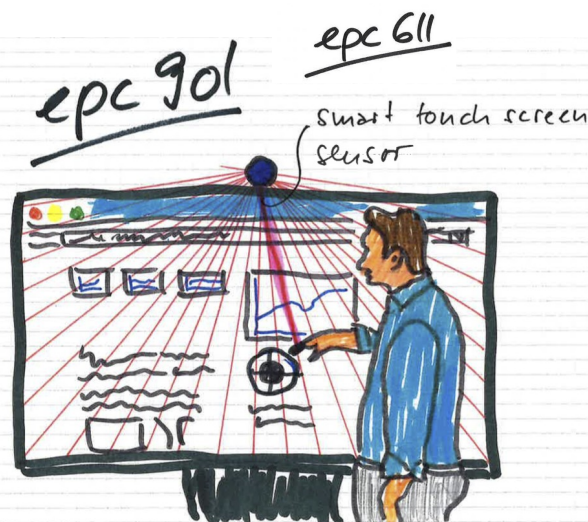 epc 901
epc 611
smart touch screen
sensor